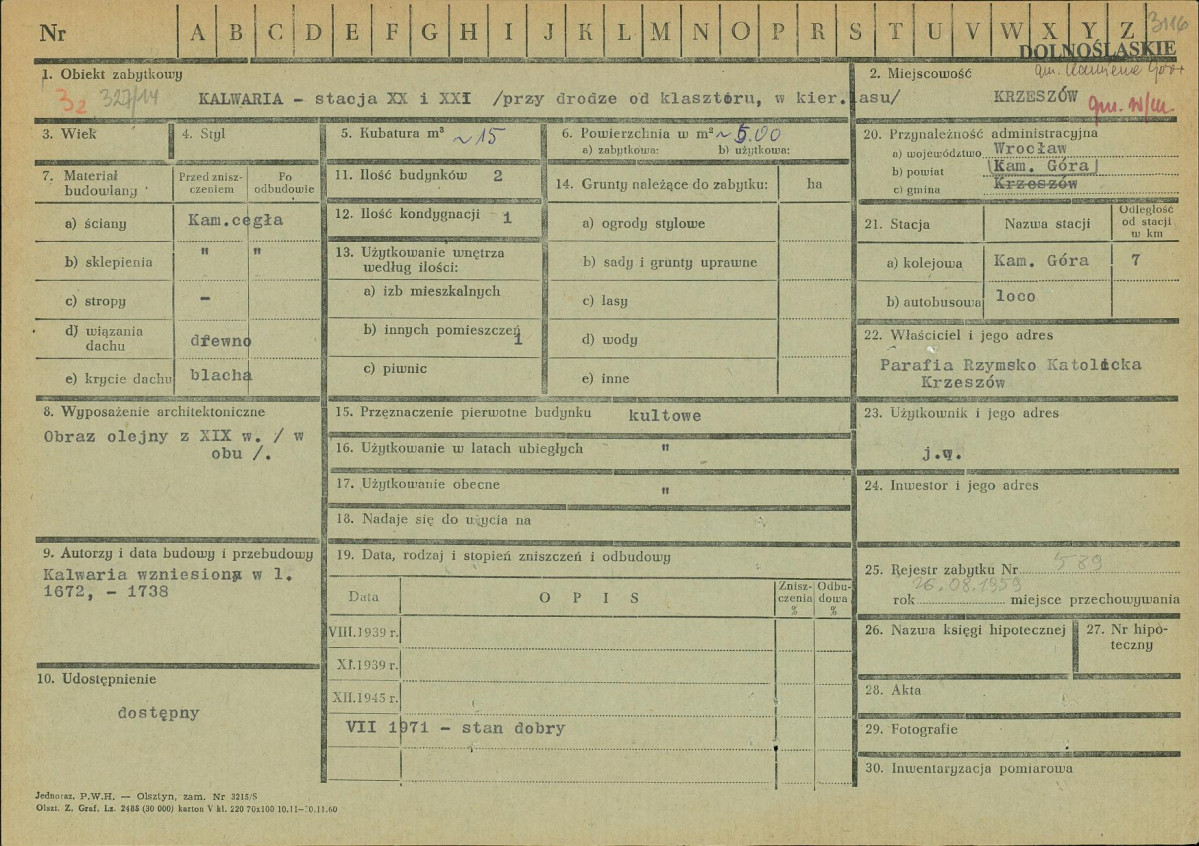 Nr A B C D E F G H I J K L M N O P R S T U V W X Y Z 3116
DOLNOŚLĄSKIE
1. Obiekt zabytkowy
32 327/14
KALWARIA - stacja XX i XXI /przy drodze od klasztoru, w kier. lasu/
2. Miejscowość
gm. Kamienna Góra
KRZESZÓW gm. w/m.
3. Wiek
4. Styl
5. Kubatura m³ ~15
6. Powierzchnia w m² ~ 5.00
a) zabytkowa: b) użytkowa:
7. Materiał budowlany
Przed zniszczeniem
Po odbudowie
a) ściany Kam.cegła
b) sklepienia " "
c) stropy -
d) wiązania dachu drewno
e) krycie dachu blacha
8. Wyposażenie architektoniczne
Obraz olejny z XIX w. / w
obu /.
9. Autorzy i data budowy i przebudowy
Kalwaria wzniesiona w l.
1672, - 1738
10. Udostępnienie
dostępny
11. Ilość budynków 2
12. Ilość kondygnacji 1
13. Użytkowanie wnętrza
według ilości:
a) izb mieszkalnych
b) innych pomieszczeń 1
c) piwnic
14. Grunty należące do zabytku: ha
a) ogrody stylowe
b) sady i grunty uprawne
c) lasy
d) wody
e) inne
15. Przeznaczenie pierwotne budynku kultowe
16. Użytkowanie w latach ubiegłych "
17. Użytkowanie obecne "
18. Nadaje się do użycia na
19. Data, rodzaj i stopień zniszczeń i odbudowy
Data
O P I S
Zniszczenia %
Odbudowa %
VIII.1939 r.
XI.1939 r.
XII.1945 r.
VII 1971 - stan dobry
20. Przynależność administracyjna
a) województwo Wrocław
b) powiat Kam. Góra
c) gmina Krzeszów
21. Stacja
Nazwa stacji
Odległość od stacji w km
a) kolejowa Kam. Góra 7
b) autobusowa loco
22. Właściciel i jego adres
Parafia Rzymsko Katolicka
Krzeszów
23. Użytkownik i jego adres
j.w.
24. Inwestor i jego adres
25. Rejestr zabytku Nr 589
rok 26.08.1959 miejsce przechowywania
26. Nazwa księgi hipotecznej
27. Nr hipoteczny
28. Akta
29. Fotografie
30. Inwentaryzacja pomiarowa
Jednoraz. P.W.H. — Olsztyn, zam. Nr 3215/S
Olszt. Z. Graf. Lz. 2485 (30 000) karton V kl. 220 70x100 10.11—30.11.60